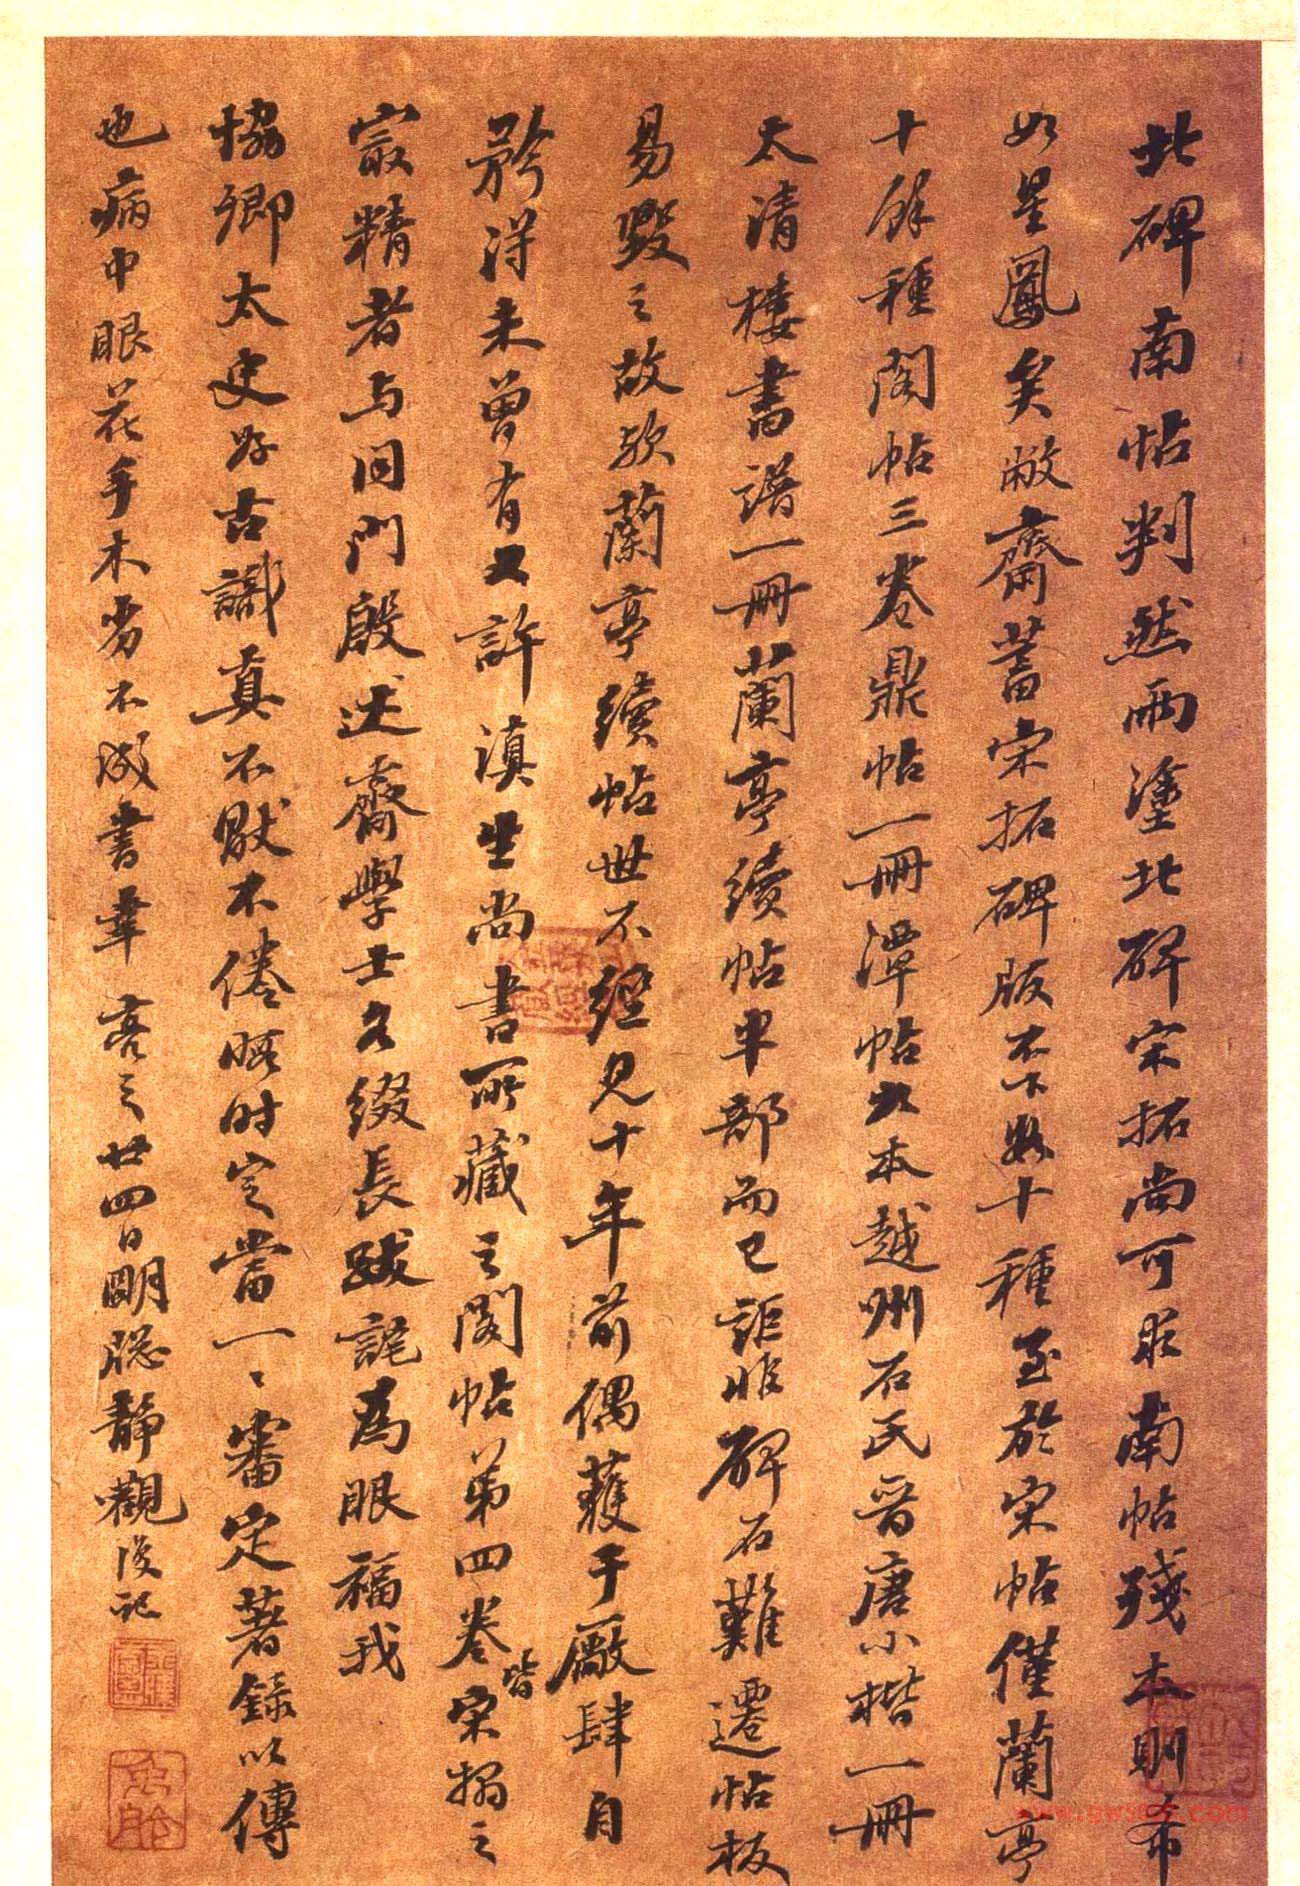 北碑南帖判然兩塗北碑宋拓尚可求南帖殘本則希
如星鳳矣敝齋蓄宋拓碑版不下數十種至於宋帖僅蘭亭
十餘種閣帖三卷鼎帖一冊潭帖六本越州石氏晉唐小楷一冊
太清樓書譜一冊蘭亭續帖半部而已詎惟碑石難遷帖板
易毀之故歟蘭亭續帖世不經見十年前偶獲于廠肆自
矜得未曾有又許滇生尚書所藏之閣帖第四卷皆宋搨之
最精者與同門殷述齋學士各綴長跋詫為眼福我
協卿太史好古識真不厭不倦暇時定當一一審定著錄以傳
也病中眼花手木劣不成書幸 亮之廿四日朙聰靜觀後記
www.gw